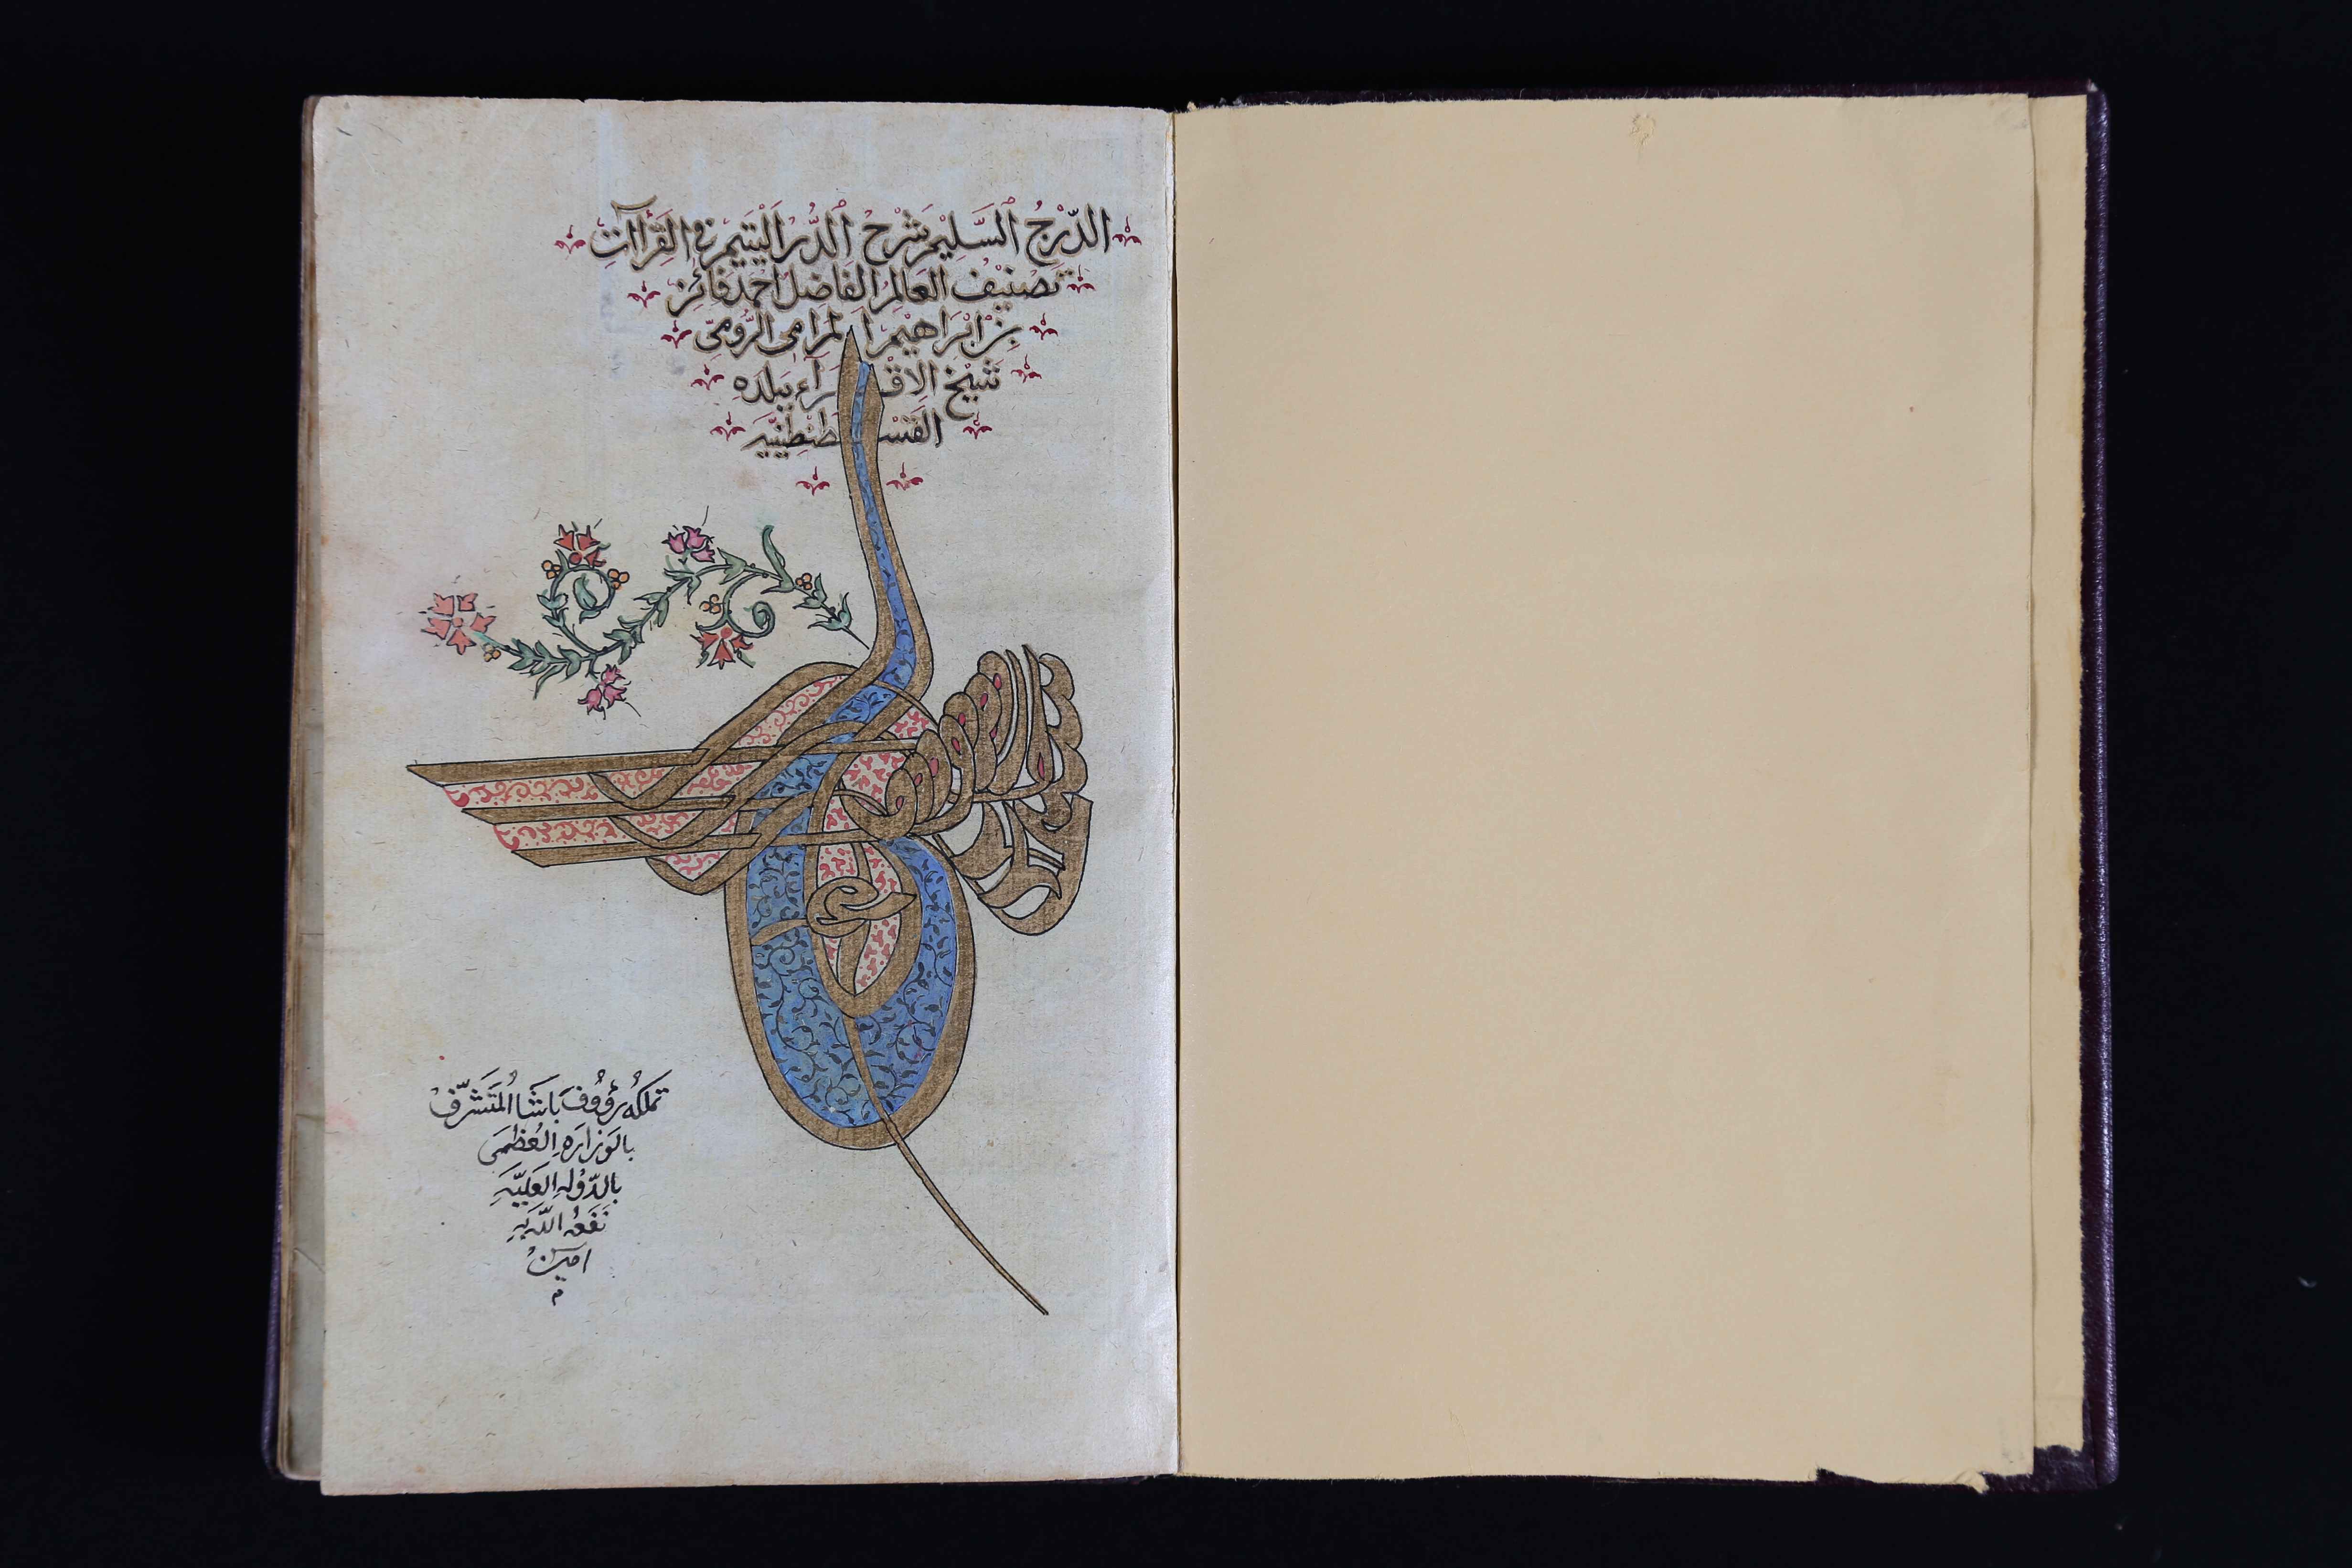 الدّرْجُ السَّلِيْم شَرْحُ الدُّرِ الْيَتِيْم في القِرَاآتِ
تَصْنِيْف العَالِم الفَاضِل احْمَد فَائِز
بن ابْرَاهِيْم الرُّومِيّ
شَيْخ الاِقْرَآء بِبلدَه
القُسْطَنْطِيْنِيَّه
تملكه رَؤُوف بَاشَا المُتَشَرِّف
بالوَزارَهِ العُظمَى
بالدّوْلهِ العَلِيَّهِ
نَفَعَهُ اللّه بِهِ
امين
م